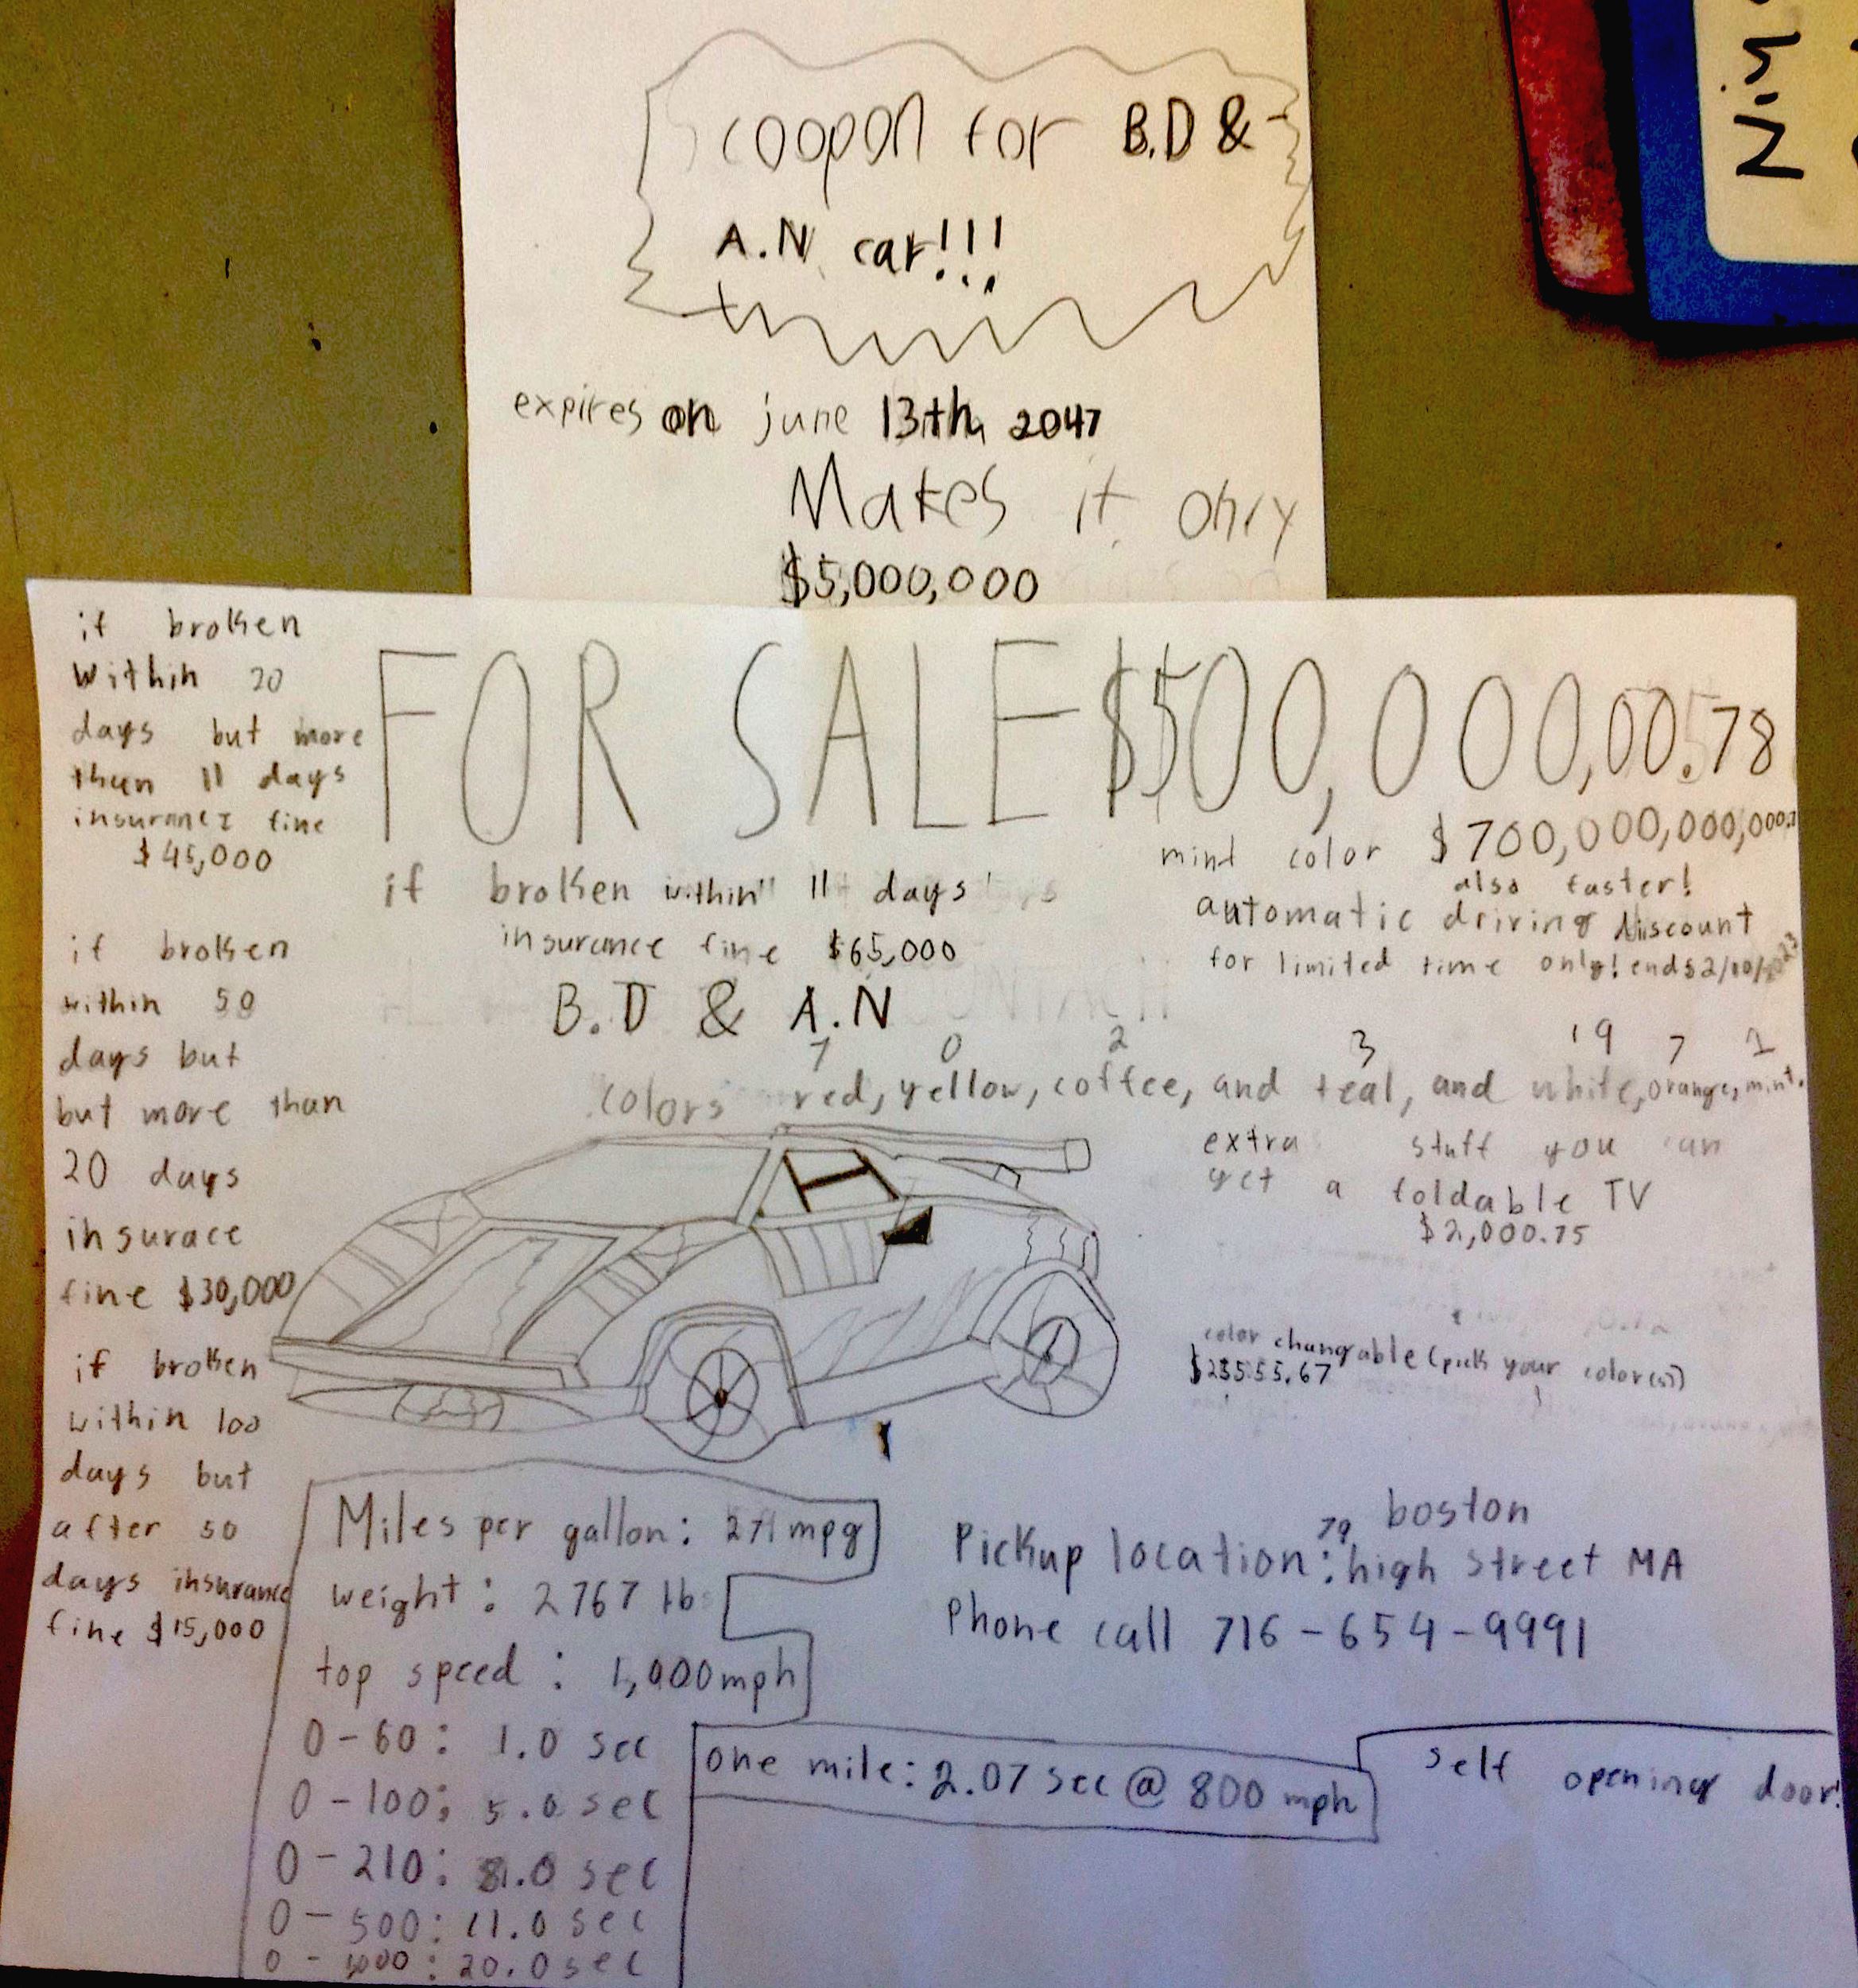 coopon for B.D &
A.N car!!!
expires on june 13th 2047
Makes it only
$5,000,000
if broken
within 20
days but more
than 11 days
insurance fine
$45,000
if broken
within 50
days but
but more than
20 days
insurace
fine $30,000
if broken
within 100
days but
after 50
days insurance
fine $15,000
FOR SALE $500,000,00.78
mint color $700,000,000,000.
also faster!
automatic driving discount
for limited time only! ends 2/10/2023
if broken within 11 days
insurance fine $65,000
B.D & A.N
7 0 2 3 19 7 1
colors red, yellow, coffee, and teal, and white, orange, mint.
extra stuff you can
get a foldable TV
$2,000.75
color changable (pick your color(s))
$23555.67
Miles per gallon: 271 mpg
weight: 2767 lb
top speed: 1,000mph
0-60: 1.0 sec
0-100: 5.0 sec
0-210: 8.0 sec
0-500: 11.0 sec
0-1000: 20.0 sec
boston
Pickup location: 79 high street MA
Phone call 716-654-9991
one mile: 2.07 sec @ 800 mph
self opening door!